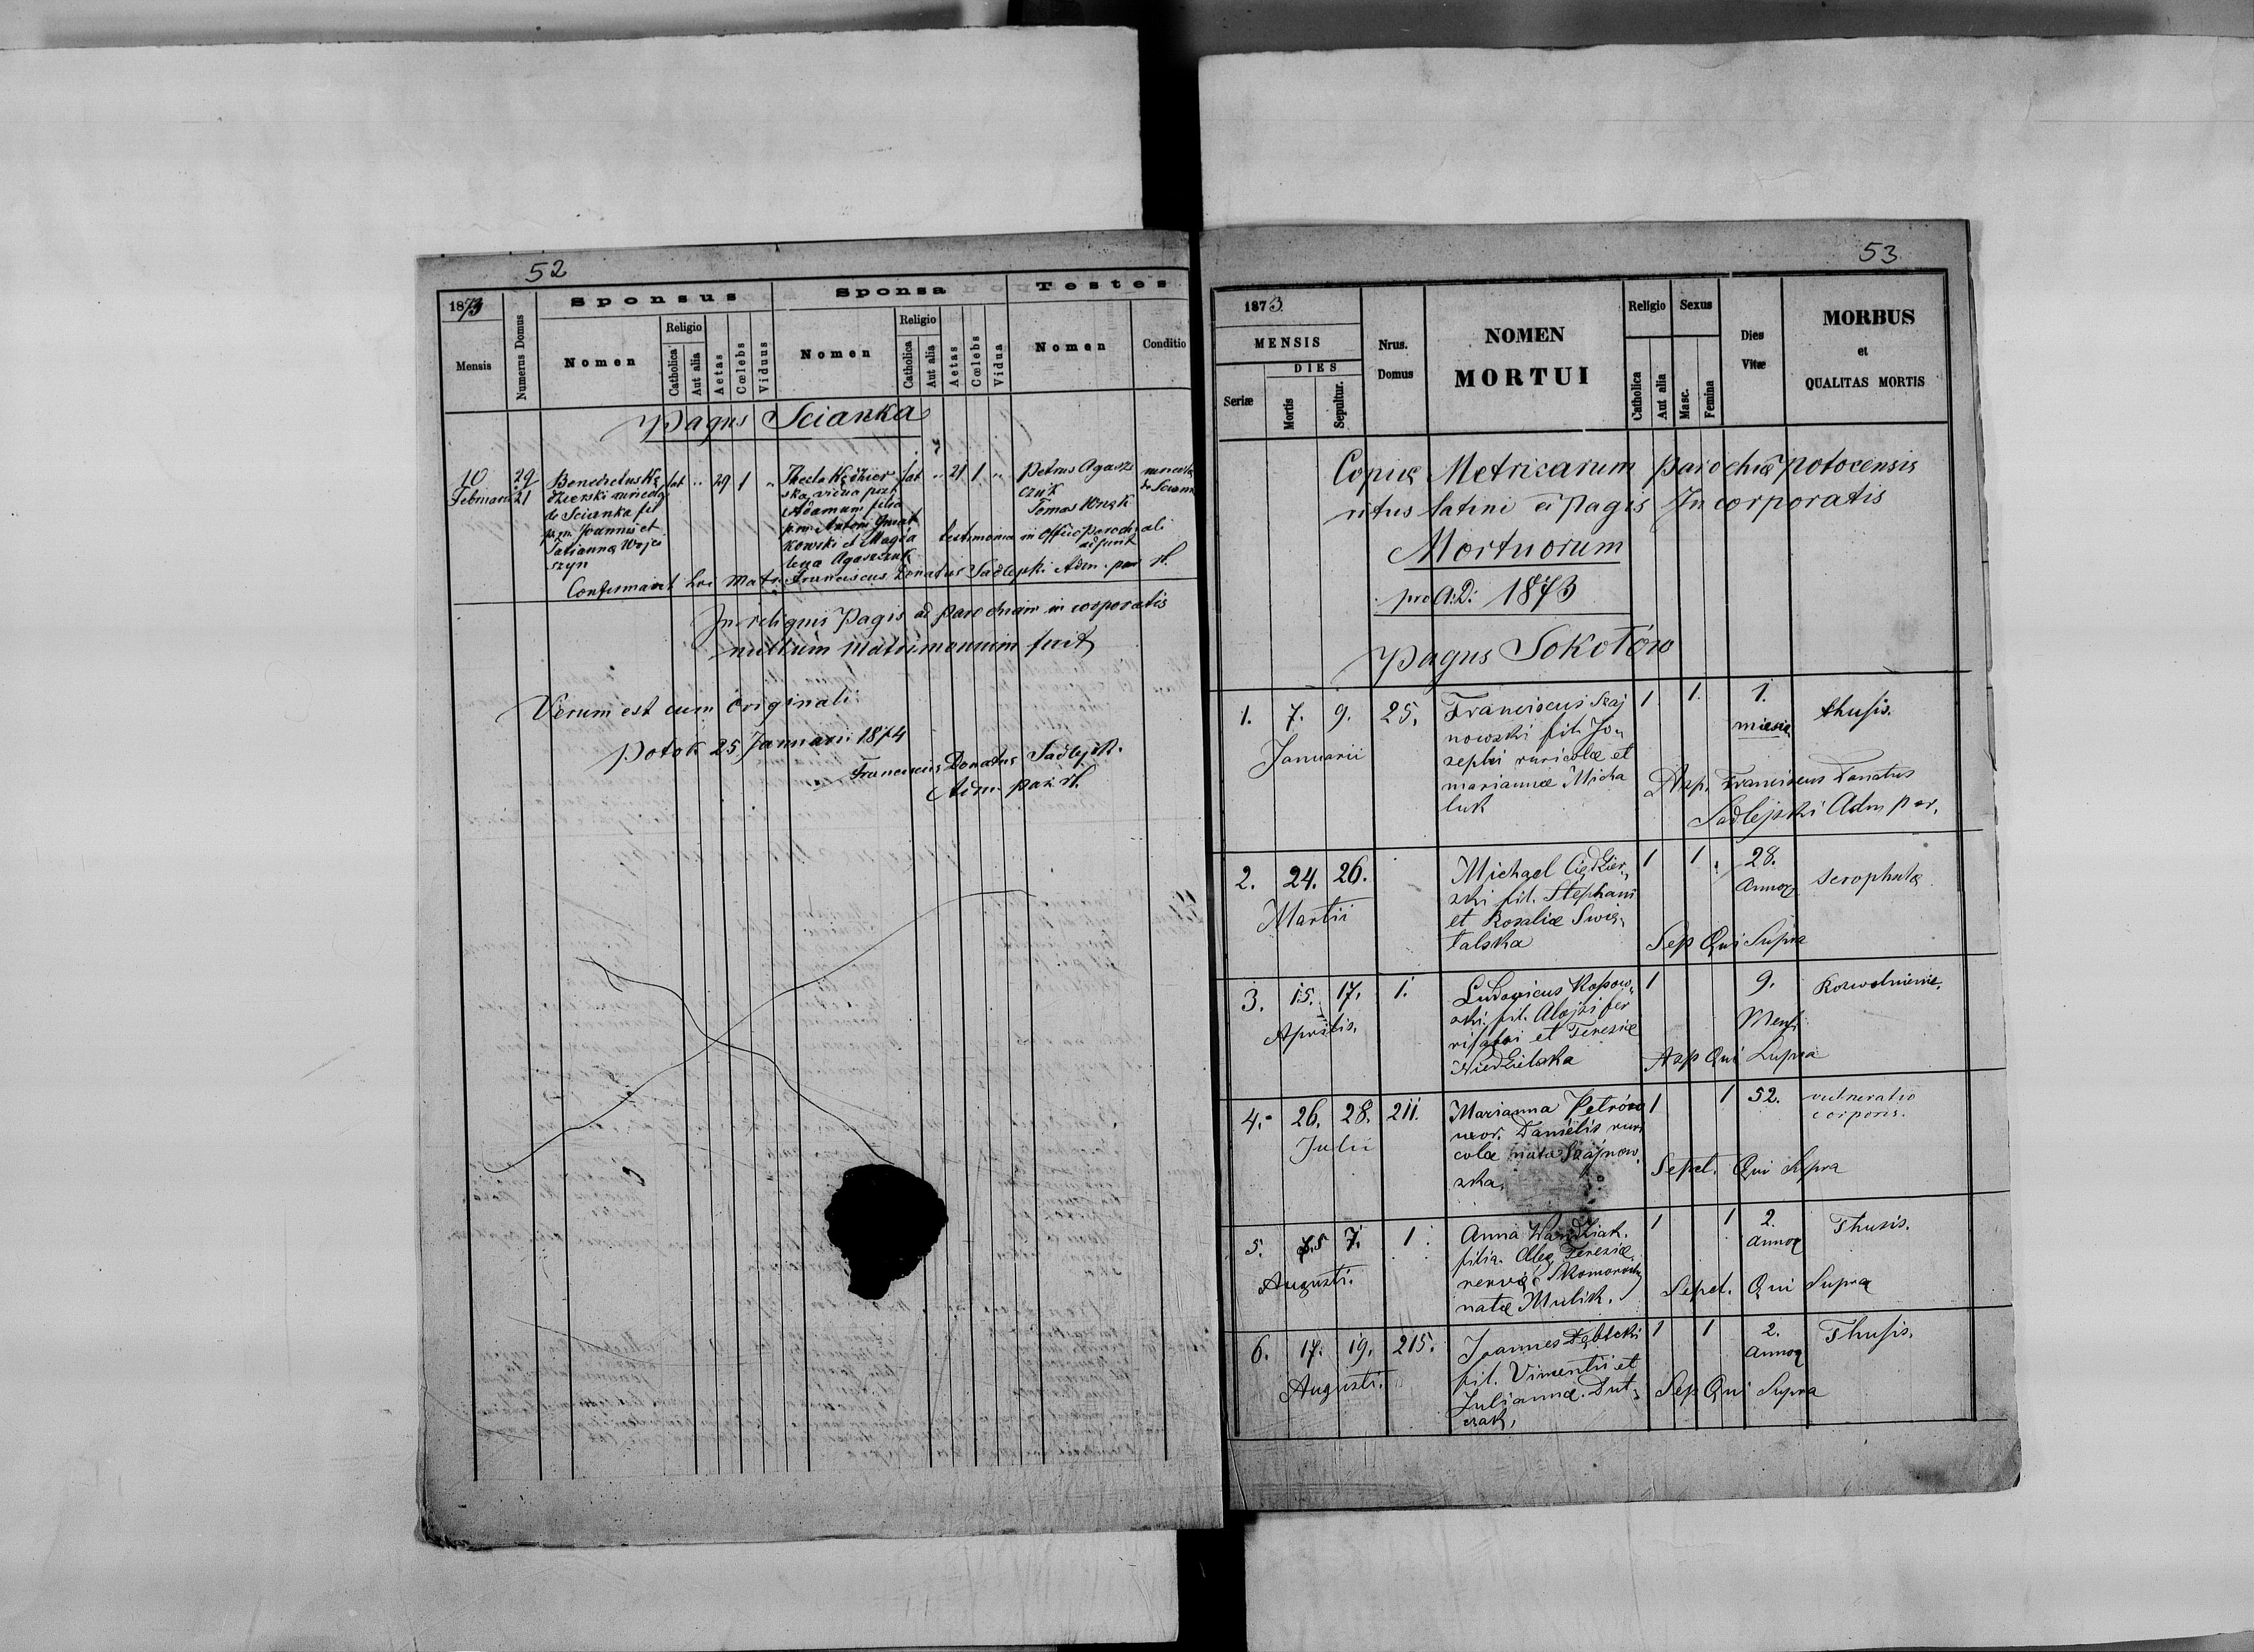 52
1873
Mensis
Numerus Domus
Sponsus
Nomen
Religio
Catholica
Aut alia
Aetas
Cœlebs
Viduus
Sponsa
Nomen
Religio
Catholica
Aut alia
Aetas
Cœlebs
Vidua
Testes
Nomen
Conditio
Pagus Scianka
10
Februarii
29
21
Benedictus Kę
dzierski
de Scianka fil
p.m. Joannis et
Tatianna Wojci
szyn
lat
29
1
Thecla Kędzier
ska vidua post
Adamum filia
p.m. Antoni Gwiat
kowski et Magda
lena Agaszczuk
lat
21
1
Petrus Agasz
czuk
Tomas
de Scian
testimonia in Officio Parochiali
adsunt
Confirmavit hoc Matr. Franciscus Donatus Sadlejski Adm. par rl.
In reliquis Pagis ad parochiam in corporatis
nullum Matrimonium fuit
Verum est cum originali
Potok 25 Januarii 1874
Franciscus Donatus Sadlejski
Adm. par. rl.
53
1873
MENSIS
Seriæ
DIES
Mortis
Sepultur.
Nrus.
Domus
NOMEN
MORTUI
Religio
Catholica
Aut alia
Sexus
Masc.
Femina
Dies
Vitæ
MORBUS
et
QUALITAS MORTIS
Copia Metricarum parochiæ potocensis
ritus latini et pagis In corporatis
Mortuorum
pro A: D: 1873
Pagus Sokołów
1. 7. 9. 25.
Januarii
Franciscus Szaj
nowski fil. Jo
sephi ruricolæ et
mariannæ Micha
luk
1 1. 1.
thusis.
Franciscus Donatus
Sadlejski Adm par.
2. 24. 26.
Martii
Michael Cędzier
ski fil. Stephani
et Rozaliæ Swię
talska
1 1 28.
Annor
scrophulæ
Sep Qui Supra
3. 15. 17. 1.
Aprilis.
Ludovicus Kopow
ski fil. Alojzi
et Teresiæ
Niedzielska
1 9.
Mens
Rozwolnienie.
Asp Qui Supra
4. 26. 28. 211.
Julii
Marianna Petrów
uxor. Danielis ruri
colæ nata Szajnow
ska.
1 1 52.
vulneratio
corporis.
Sepel. Qui Supra
5. 5 7. 1
Augusti.
Anna Wandziak.
filia Teresiæ
natæ Mulik.
1 1 2.
Annor
Thusis.
Sepel. Qui Supra
6. 17. 19. 215.
Augusti.
Joannes Dębicki
fil. Vincentii et
Juliannæ Dut
czak,
1 1 2.
Annor
Thusis.
Sep Qui Supra